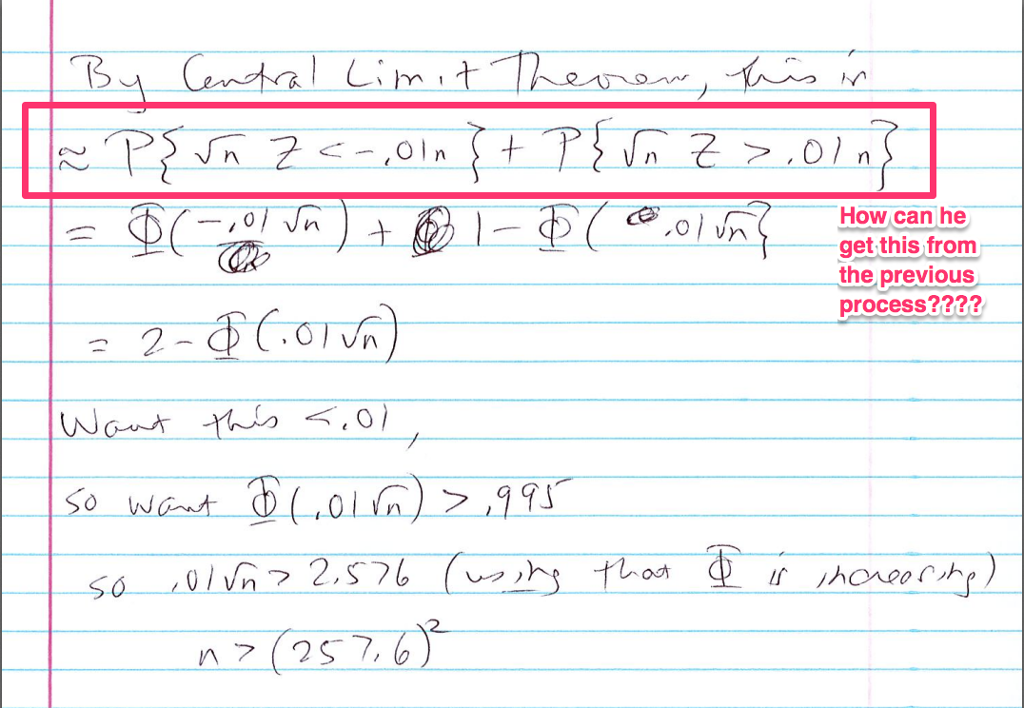 By Central Limit Theorem, this is
≈ P{√n Z < -.01n} + P{√n Z > .01n}
= Φ(-.01√n) + 1 - Φ(.01√n}
How can he
get this from
the previous
process????
= 2 - Φ(.01√n)
Want this < .01,
so want Φ(.01√n) > .995
so .01√n > 2.576 (using that Φ is increasing)
n > (257.6)²